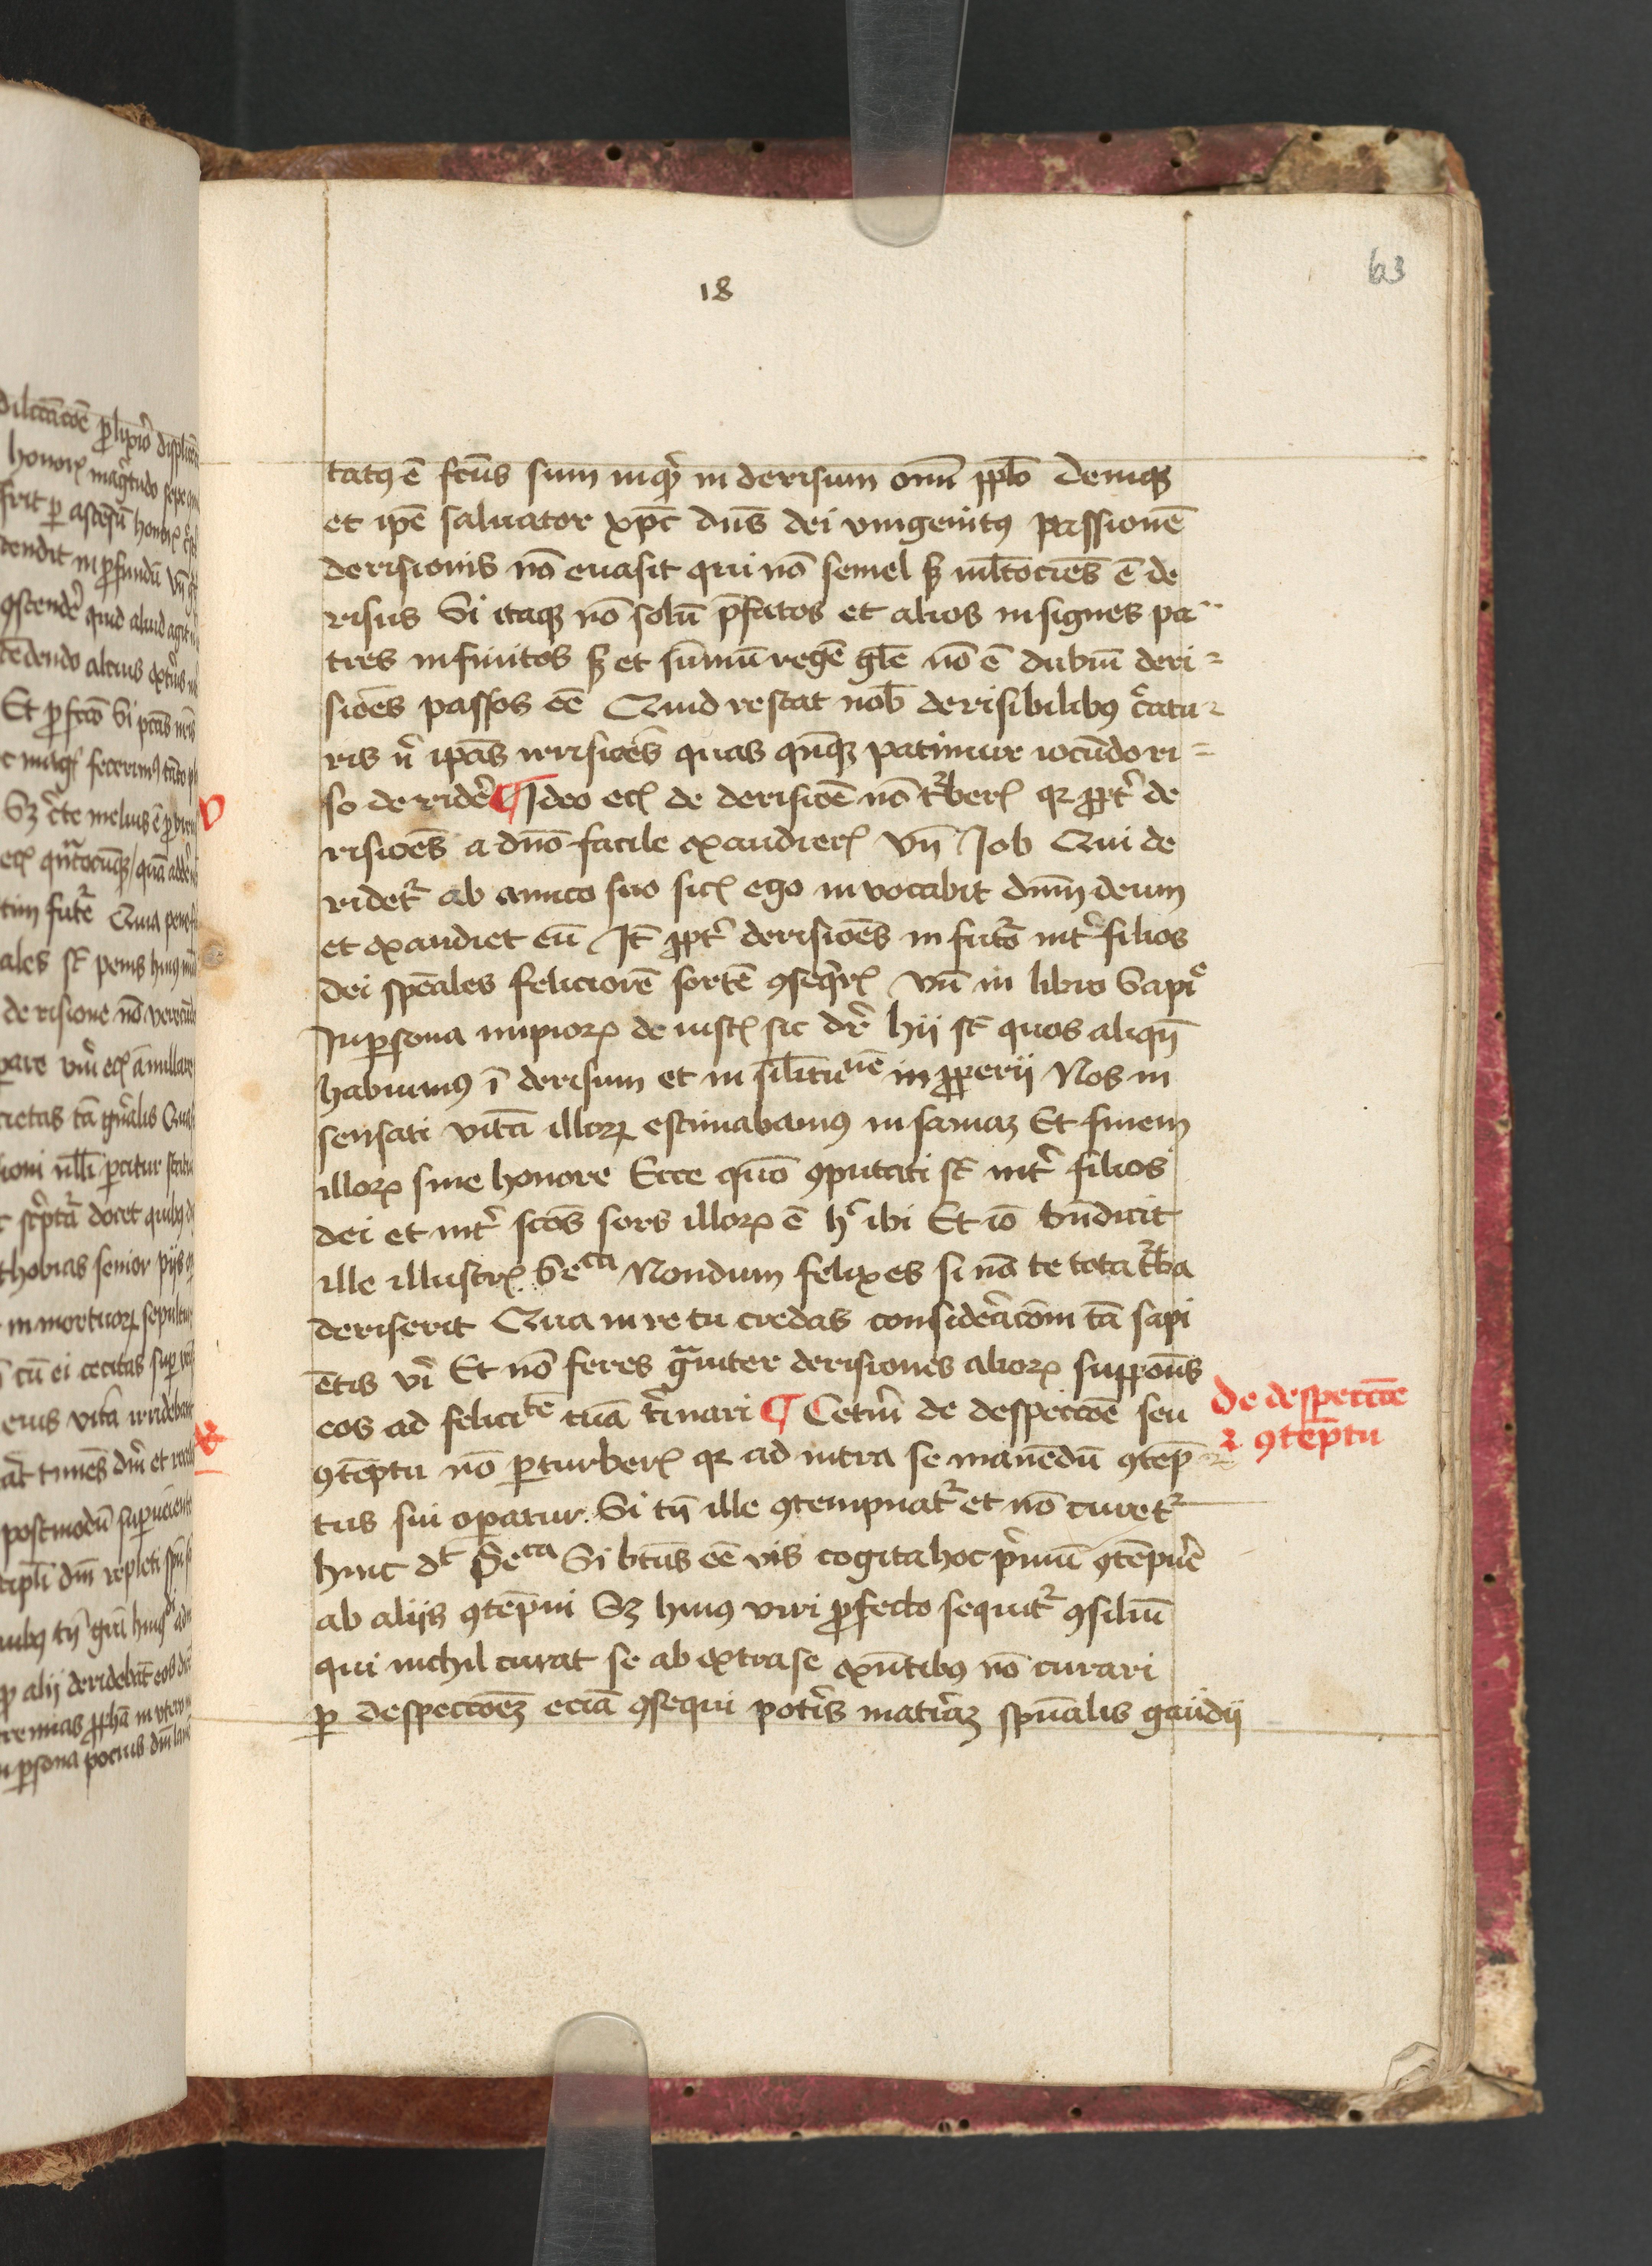 18
63
tatꝯ ē fcūs sum inqͥ in derisum om̄i pplō Deniqꝫ
et ip̄e saluator xp̄c dn̄s dei vnigenitꝯ passionē
derisionis nō euasit qui nō semel sꝫ ml̄tociēs ē de
risus Si itaqꝫ nō solū p̄fatos et alios insignes pa-
tres infinitos sꝫ et sūmū regē gl̄e nō ē dubiū deri=
siōes passos eē Quid restat nob̄ derisibilibꝯ c̄atu-
ris n̄ ip̄as irrisiōes quas qn̄qꝫ patimur iocūdo ri=
so deridē ¶ Ideo ecꝭ de derisiōe nō tͬberꝭ qꝛ ꝓpt̄ de
risiōes a dn̄o facile exaudierꝭ Vn̄ Job Qui de
ridetᷣ ab amico suo sicꝭ ego inuocabit dn̄m deum
et exaudiet eū It̄ ꝓpt̄ derisiōes in futō int̄ filios
dei spēales feliciorē sortē ꝯseqͬrꝭ Vn̄ in libro Sapiͤ
In ꝑsona impioꝝ de iustꝭ sic dr̄ hij st̄ quos aliqn̄
habuimꝯ ī derisum et in sil̄ituͫē inꝓperij Nos in
sensati vitā illoꝝ estimabamꝯ insaniaꝫ Et finem
illoꝝ sine honore Ecce quō ꝯputati st̄ int̄ filios
dei et int̄ scōs sors illoꝝ ē hͨ ibi Et iō bn̄ dicit
ille illustrꝭ Seᶜᵃ Nondum felix es si nō te tota tͬba
deriserit Qua in re tu credas consideracōm tā sapi
ētis vͥ Et nō feres gͣuiter derisiones alioꝝ supponēs
eos ad feliciᵗē tuā t̄inari ¶ Cetm̄ de despectōe seu
ꝯtēptu nō ꝑturberꝭ qꝛ ad intra se manēdū ꝯtēp
tus sui oꝑatur. Si tn̄ ille ꝯtempnatᷣ et nō curetᷣ
hinc dᵗ Seᶜᵃ Si bt̄us eē vis cogita hoc pͥmū ꝯtēpnē
ab alijs ꝯtēpni Sꝫ hiuꝯ viri ꝓfecto sequitᷣ ꝯsiliū
qui nichil curat se ab extra se exn̄tibꝯ nō curari
ꝑ despectōeꝫ eciā ꝯsequi potͥs mat̄iaꝫ spūalis gaudij
De despectōe
⁊ ꝯtēptu